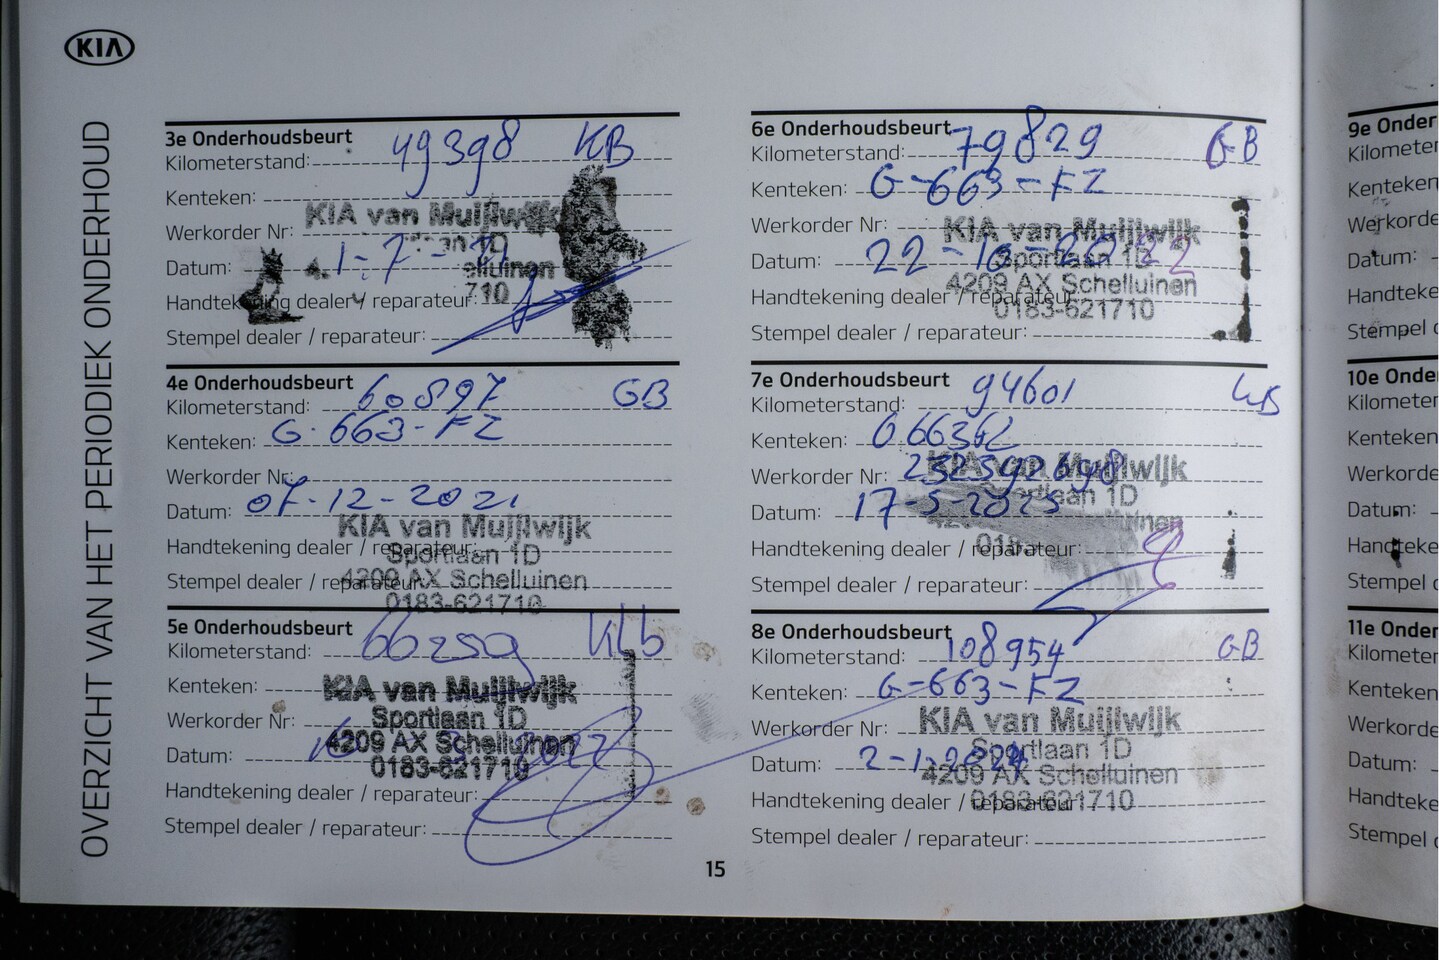 KIA
OVERZICHT VAN HET PERIODIEK ONDERHOUD
3e Onderhoudsbeurt
Kilometerstand: 49398 KB
Kenteken:
KIA van Muijlwijk
Werkorder Nr:
Datum: 1-7-
elluinen
Handtekening dealer / reparateur:
710
Stempel dealer / reparateur:
4e Onderhoudsbeurt
Kilometerstand: 60897 GB
Kenteken: G-663-FZ
Werkorder Nr:
Datum: 07-12-2021
KIA van Muijlwijk
Handtekening dealer / reparateur:
Sportlaan 1D
Stempel dealer / reparateur:
4209 AX Schelluinen
0183-621710
5e Onderhoudsbeurt
Kilometerstand: 66259
Kenteken:
KIA van Muijlwijk
Werkorder Nr:
Sportlaan 1D
4209 AX Schelluinen
Datum:
0183-621710
Handtekening dealer / reparateur:
Stempel dealer / reparateur:
6e Onderhoudsbeurt
Kilometerstand: 79829 GB
Kenteken: G-663-FZ
Werkorder Nr:
KIA van Muijlwijk
Datum: 22-10-2022
Sportlaan 1D
4209 AX Schelluinen
Handtekening dealer / reparateur:
0183-621710
Stempel dealer / reparateur:
7e Onderhoudsbeurt
Kilometerstand: 94601
Kenteken:
Werkorder Nr: 232392698
KIA van Muijlwijk
Sportlaan 1D
Datum: 17-5-2023
Handtekening dealer / reparateur:
Stempel dealer / reparateur:
8e Onderhoudsbeurt
Kilometerstand: 108954 GB
Kenteken: G-663-FZ
Werkorder Nr:
KIA van Muijlwijk
Sportlaan 1D
Datum: 2-1-2024
4209 AX Schelluinen
Handtekening dealer / reparateur:
0183-621710
Stempel dealer / reparateur:
15
9e Onder
Kilometer
Kenteken
Werkorde
Datum:
Handteke
Stempel
10e Onde
Kilometer
Kenteken
Werkorde
Datum:
Handteke
Stempel
11e Onder
Kilometer
Kenteken
Werkorde
Datum:
Handteke
Stempel